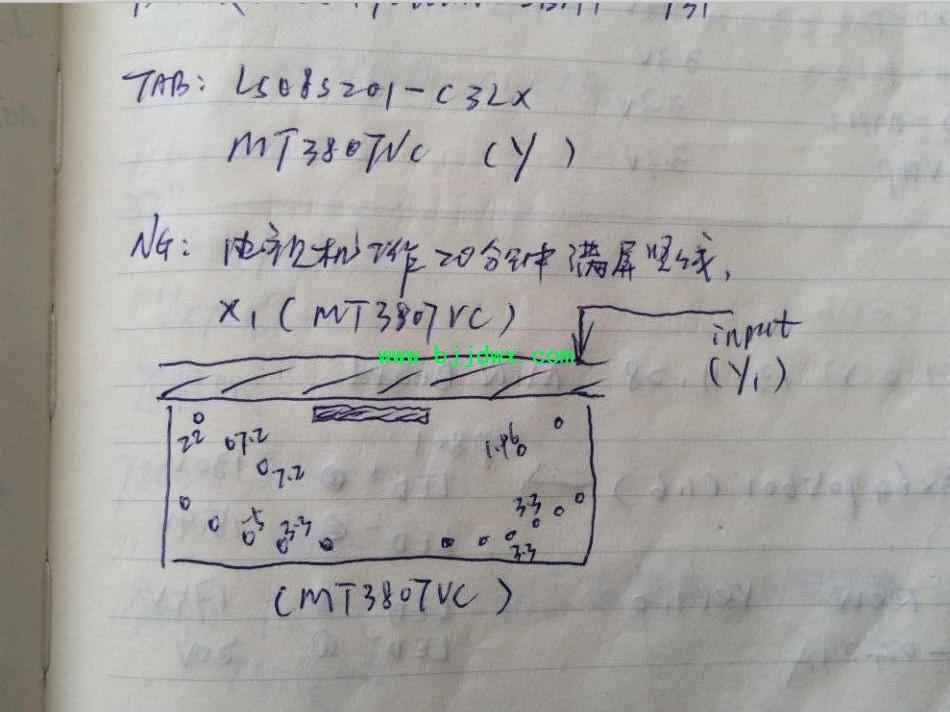 TAB: LS08S201-C3LX
MT3807VC (Y)
NG: 电视机工作20分钟满屏竖线,
X1 (MT3807VC)
www.bjjdwx.com
input
(Y1)
22 07.2 1.96
7.2
-5 3.3 3.3
3.3
(MT3807VC)